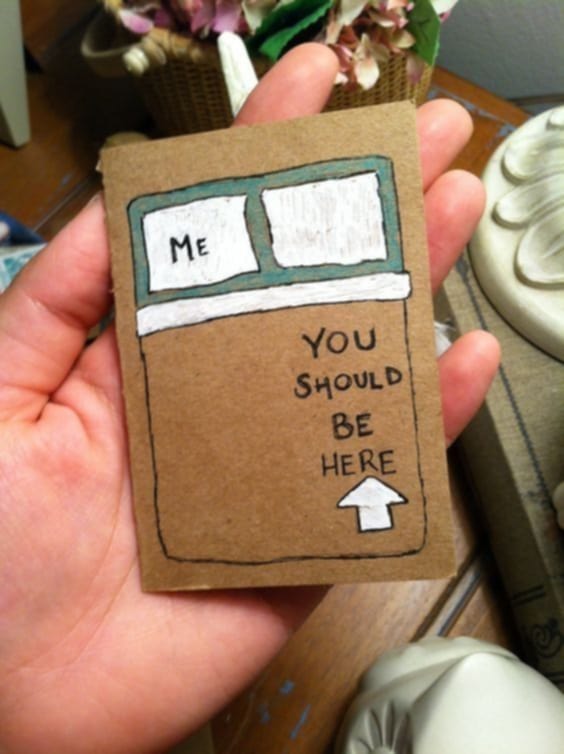 ME
YOU
SHOULD
BE
HERE